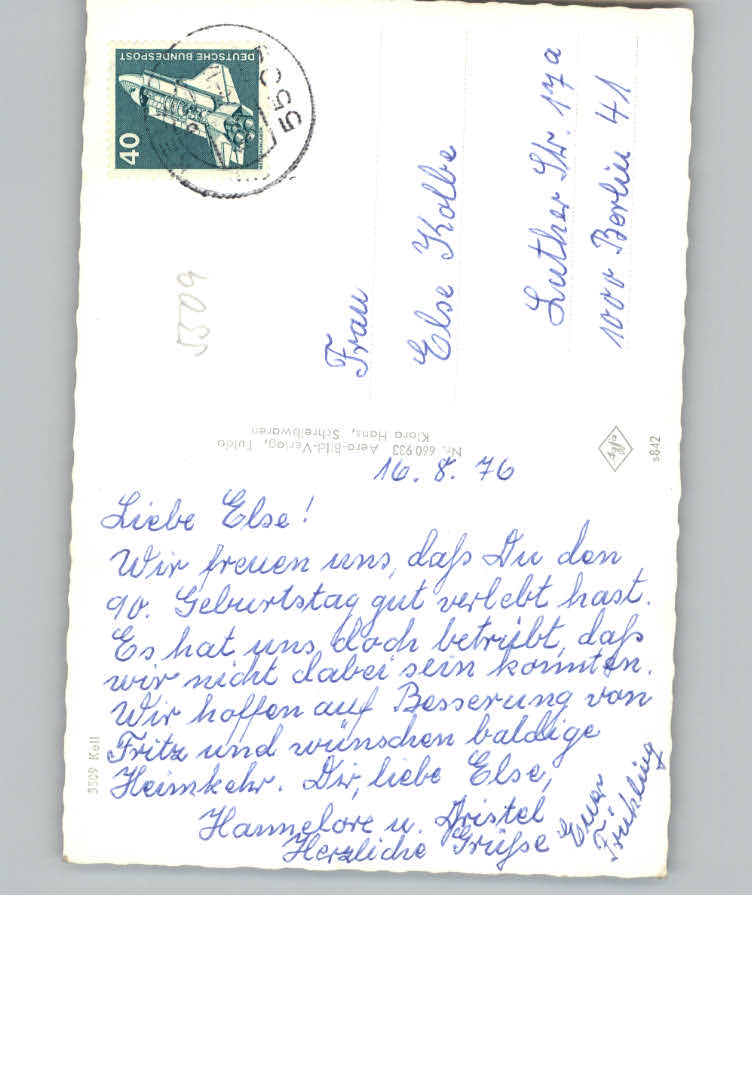 16. 8. 76
Liebe Else!
Wir freuen uns, daß Du den
90. Geburtstag gut verlebt hast.
Es hat uns doch betrübt, daß
wir nicht dabei sein konnten.
Wir hoffen auf Besserung von
Fritz und wünschen baldige
Heimkehr. Dir, liebe Else,
Hannelore u. Christel
Herzliche Grüße Euer
Frühling
Frau
Else Kolbe
Luther Str. 17a
1000 Berlin 41
5509
DEUTSCHE BUNDESPOST
40
550
Nr. 660 933 Aero-Bild-Verlag, Fulda
Klara Hans, Schreibwaren
Agfa
s842
5509 Kell